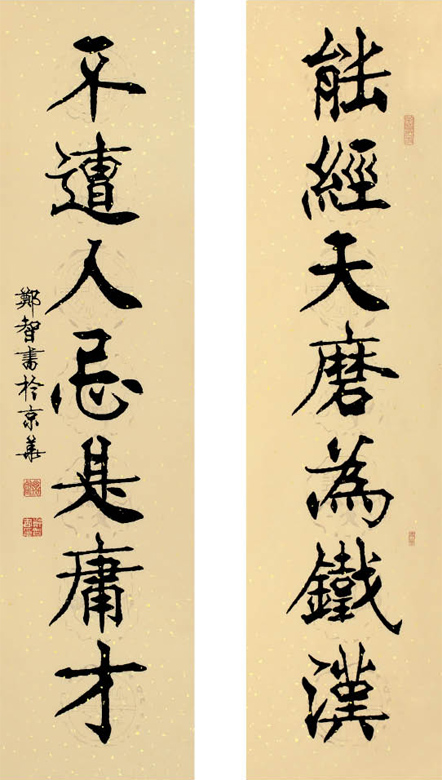 能經天磨為鐵漢
不遭人忌是庸才
鄭智書於京華